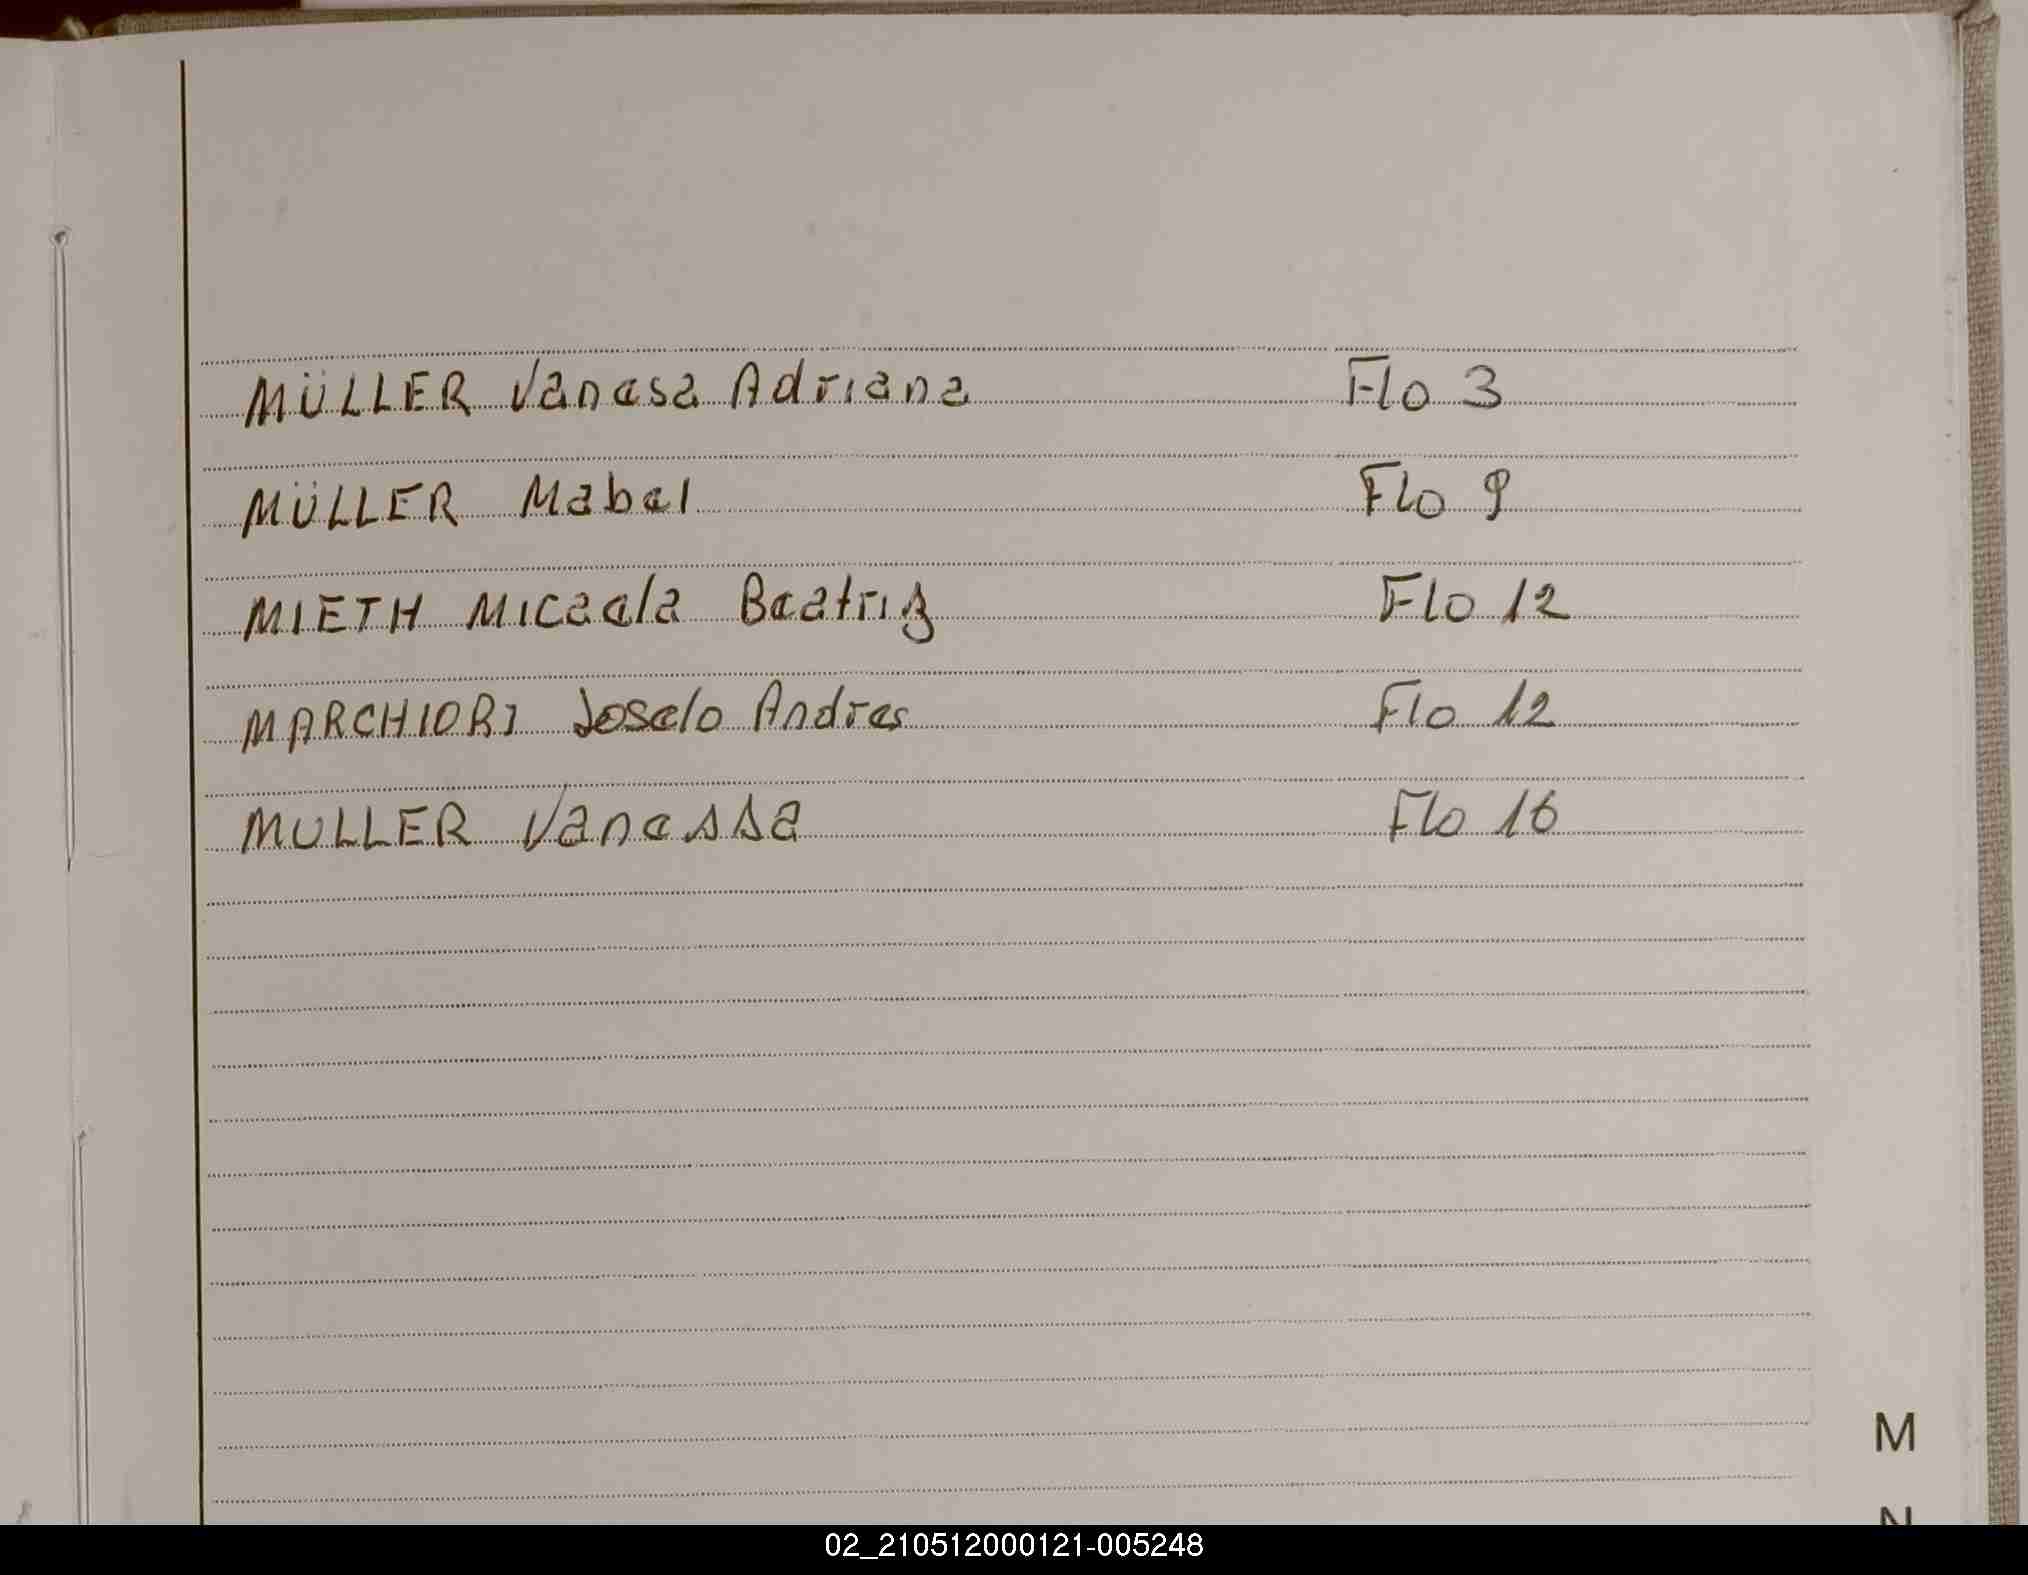 MÜLLER Vanesa Adriana Flo 3
MÜLLER Mabel Flo 9
MIETH Micaela Beatriz Flo 12
MARCHIORI Joselo Andres Flo 12
MULLER Vanessa Flo 16
M
N
02_210512000121-005248